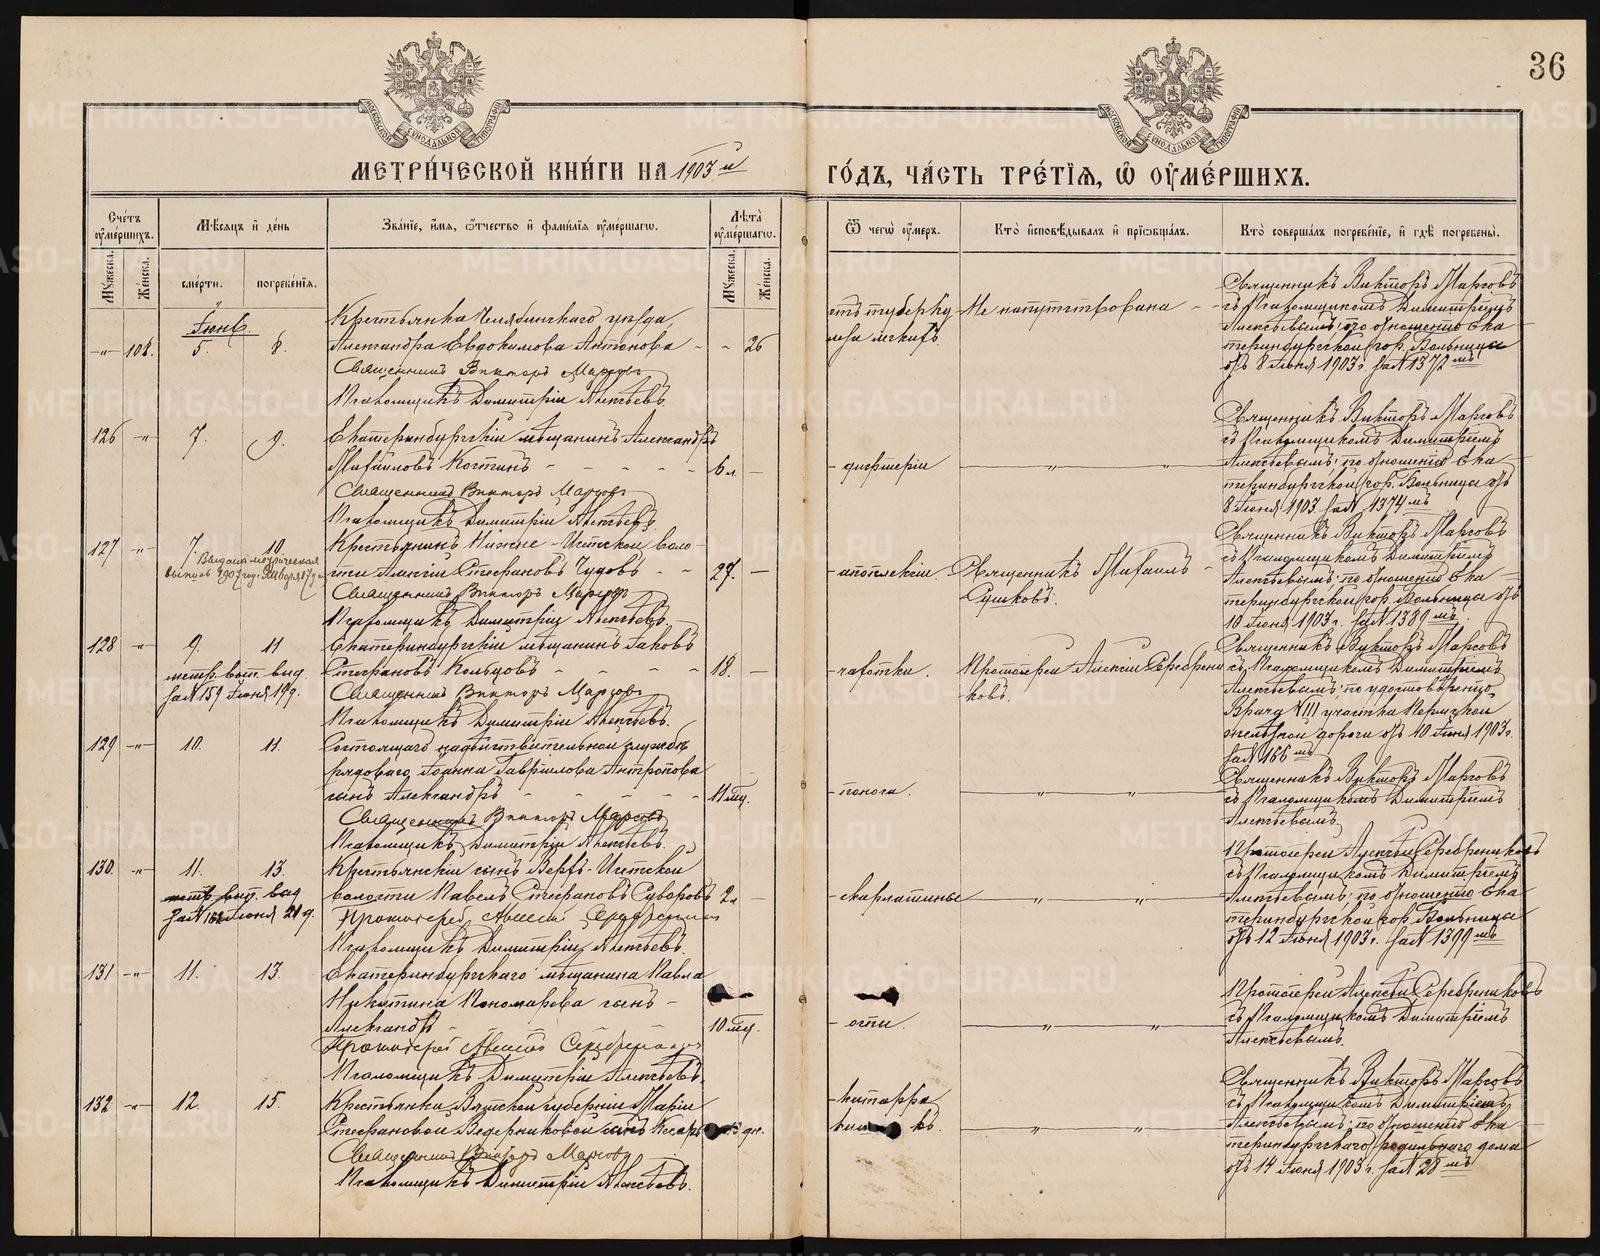 36
МОСКОВСКОЙ СѴНОДАЛЬНОЙ ТИПОГРАФІИ
МОСКОВСКОЙ СѴНОДАЛЬНОЙ ТИПОГРАФІИ
МЕТРИ́ЧЕСКОЙ КНИ́ГИ НА 1903 й ГО́ДЪ, ЧА́СТЬ ТРЕ́ТІѦ, Ѡ҆ ОУ҆МЕ́РШИХЪ.
Сче́тъ оу҆ме́ршихъ.
Мѣ́сяцъ и҆ де́нь
Зва́ніе, и҆́мѧ, ѻ҆́тчество и҆ фами́лїѧ оу҆ме́ршагѡ.
Лѣ́та оу҆ме́ршагѡ.
Ѿ чегѡ̀ оу҆́меръ.
Кто̀ и҆сповѣ́дывалъ и҆ прїѡбща́лъ.
Кто̀ соверша́лъ погребе́нїе, и҆ гдѣ̀ погребены̀.
Мꙋ́жеска.
Же́нска.
сме́рти.
погребе́нїѧ.
Мꙋ́жеска.
Же́нска.
Іюнь
-"- 108. 5. 8.
Крестьянка Челябинскаго уѣзда,
Александра Евдокимова Антонова - - 26
Священникъ Викторъ Марсовъ
Псаломщикъ Димитрій Алексѣевъ.
отъ туберку
леза легкихъ.
Не напутствована
Священникъ Викторъ Марсовъ
съ Псаломщикомъ Димитріемъ
Алексѣевымъ: по отношенію Ека
теринбургской гор. Больницы
отъ 8 Іюня 1903 г. за № 1372 мъ
126 -"- 7. 9.
Екатеринбургскій мѣщанинъ Александръ
Михайловъ Костинъ - - - - - 6 л. -
Священникъ Викторъ Марсовъ
Псаломщикъ Димитрій Алексѣевъ.
- дифтеріи " "
Священникъ Викторъ Марсовъ
съ Псаломщикомъ Димитріемъ
Алексѣевымъ: по отношенію Ека
теринбургской гор. Больницы отъ
8 Іюня 1903 за № 1374 мъ
127 -"- 7. 10.
Выдана метрическая
выпись 1907 год.
Крестьянинъ Нижне-Исетской воло
сти Алексій Стефановъ Чудовъ - - 27. -
Священникъ Викторъ Марсовъ
Псаломщикъ Димитрій Алексѣевъ.
- апоплексіи.
Священникъ Михаилъ
Сушковъ.
Священникъ Викторъ Марсовъ
съ Псаломщикомъ Димитріемъ
Алексѣевымъ: по отношенію Ека
теринбургской гор. Больницы отъ
10 Іюня 1903 г. за № 1389 мъ.
128 -"- 9. 11
метр. вып. выд.
за № 159 Іюня 19 д.
Екатеринбургскій мѣщанинъ Іаковъ
Стефановъ Кольцовъ - - - - 18. -
Священникъ Викторъ Марсовъ
Псаломщикъ Димитрій Алексѣевъ.
- чахотки.
Протоіерей Алексій Серебрени
ковъ.
Священникъ Викторъ Марсовъ
съ Псаломщикомъ Димитріемъ
Алексѣевымъ: по удостовѣренію
Врача VIII участка Пермской
желѣзной дороги отъ 10 Іюня 1903 г.
за № 166 мъ
129 -"- 10. 11.
Состоящаго на дѣйствительной службѣ
рядоваго Іоанна Гавріилова Антропова
сынъ Александръ - - - - - 11 мц.
Священникъ Викторъ Марсовъ
Псаломщикъ Димитрій Алексѣевъ.
- поноса. " "
Священникъ Викторъ Марсовъ
съ Псаломщикомъ Димитріемъ
Алексѣевымъ.
130. -"- 11. 13.
метр. вып. выд.
за № 162 Іюня 21 д.
Крестьянскій сынъ Верхъ-Исетской
волости Павелъ Стефановъ Суворовъ 2 л. -
Протоіерей Алексій Серебрениковъ
Псаломщикъ Димитрій Алексѣевъ.
- скарлатины " "
Протоіерей Алексій Серебрениковъ
съ Псаломщикомъ Димитріемъ
Алексѣевымъ: по отношенію Ека
теринбургской гор. Больницы
отъ 12 Іюня 1903 г. за № 1399 мъ
131 -"- 11. 13.
Екатеринбургскаго мѣщанина Павла
Никитина Пономарева сынъ -
Александръ - - 10 мц.
Протоіерей Алексій Серебрениковъ
Псаломщикъ Димитрій Алексѣевъ.
- оспы. " "
Протоіерей Алексій Серебрениковъ
съ Псаломщикомъ Димитріемъ
Алексѣевымъ.
132 -"- 12. 15.
Крестьянки Вятской губерніи Маріи
Стефановой Ведерниковой сынъ дн.
Священникъ Викторъ Марсовъ
Псаломщикъ Димитрій Алексѣевъ.
- катарра
" "
Священникъ Викторъ Марсовъ
съ Псаломщикомъ Димитріемъ
Алексѣевымъ: по отношенію Ека
теринбургскаго родильнаго дома
отъ 14 Іюня 1903 г. за № 28 мъ
METRIKI.GASO-URAL.RU